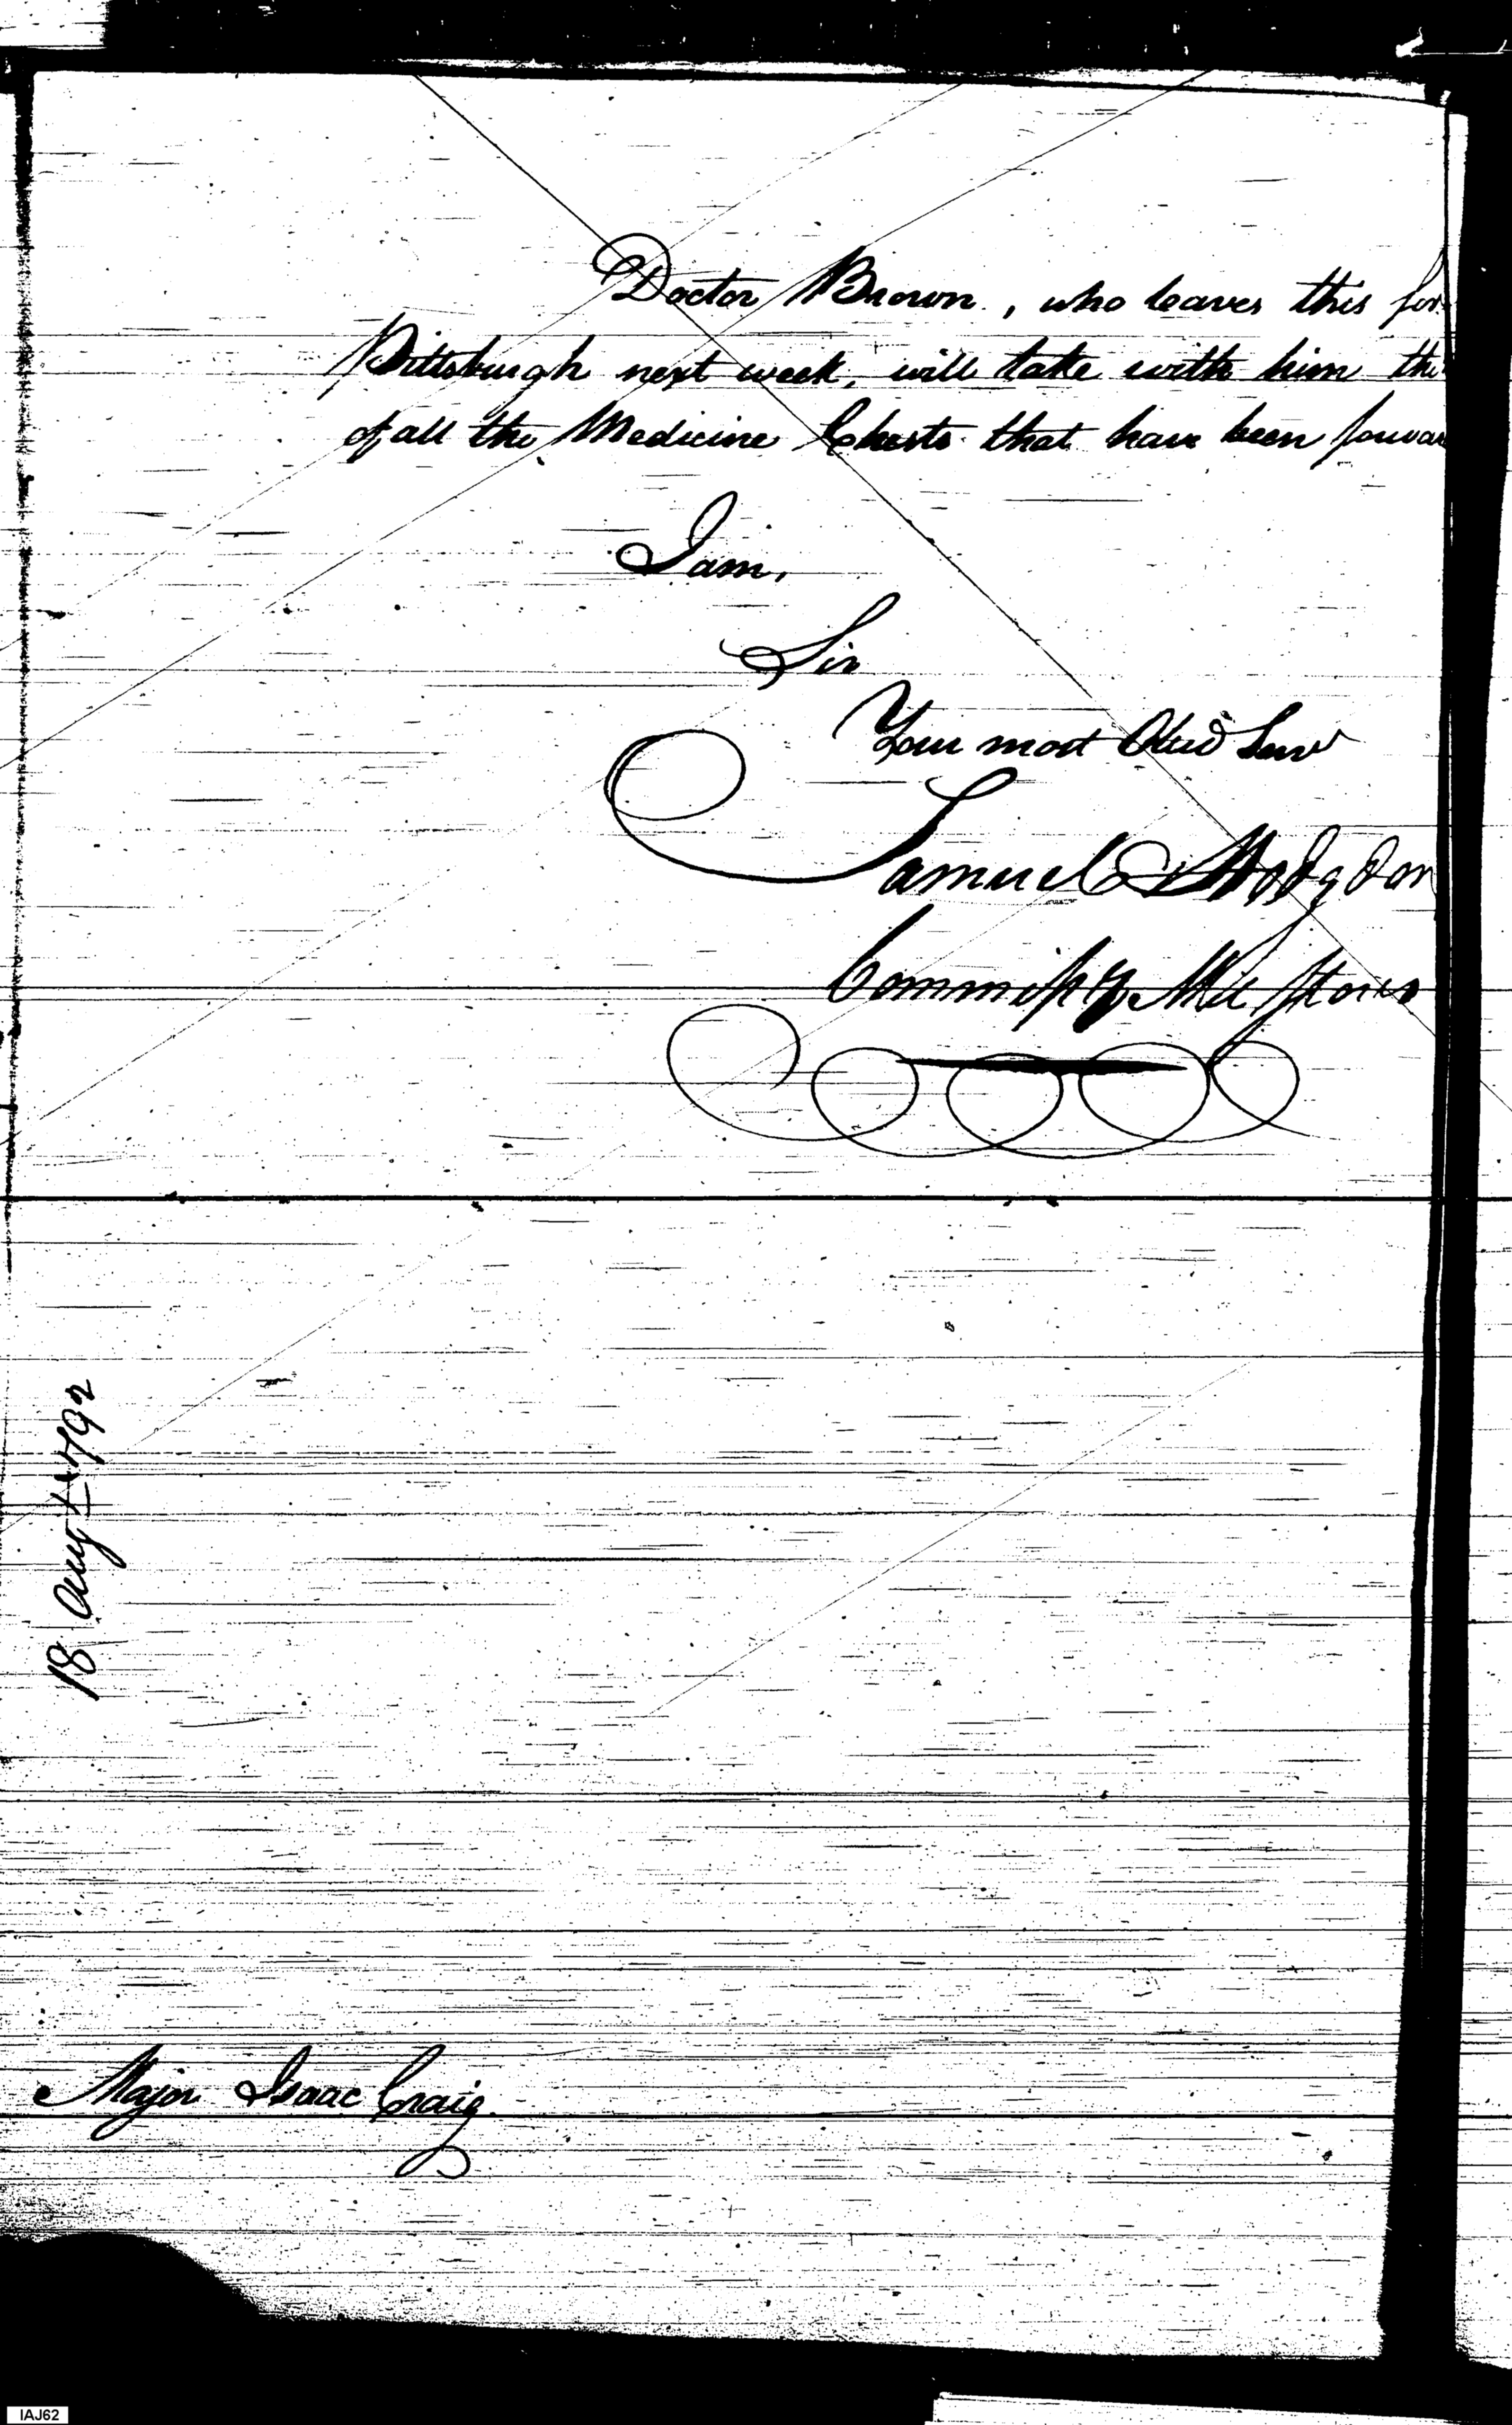 Doctor Brown, who leaves this for
Pittsburgh next week, will take with him the
of all the Medicine Chests that have been forwar
I am,
Sir
Your most Obed Serv
Samuel Hodgdon
Commissy Mil Stores
18 Augt 1792
Major Isaac Craig.
IAJ62